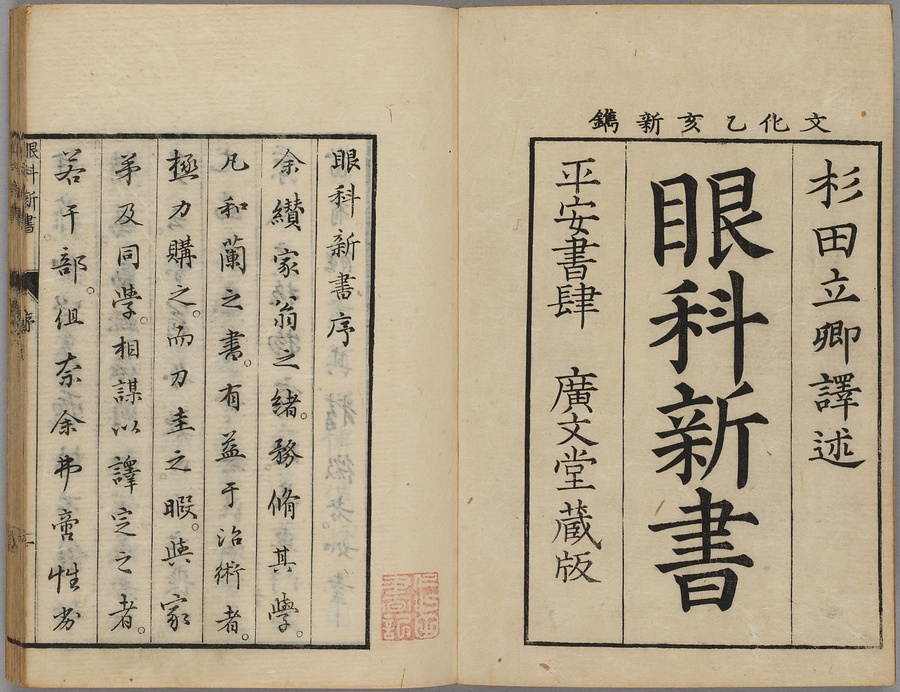 文化乙亥新鐫
杉田立卿譯述
眼科新書
平安書肆 廣文堂蔵版
眼科新書序
余纉家翁之緒。務脩其學。
凡和蘭之書。有益于治術者。
極力購之。而刀圭之暇。與家
弟及同學。相謀以譯定之者。
若干部。但奈余弗啻性劣
眼科新書
序
一